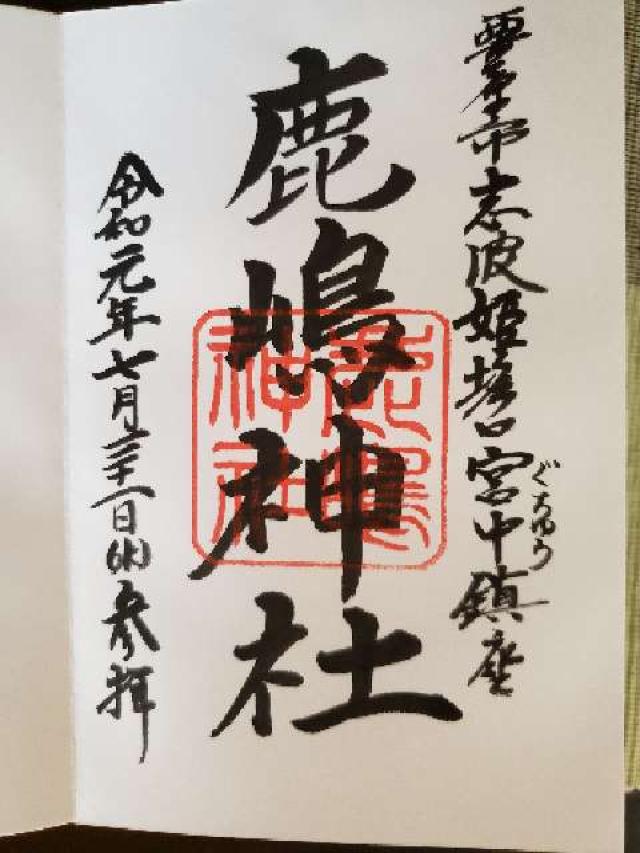 栗原市志波姫堀口宮中鎮座
ぐちゆう
鹿嶋神社
令和元年七月三十一日(水)参拝